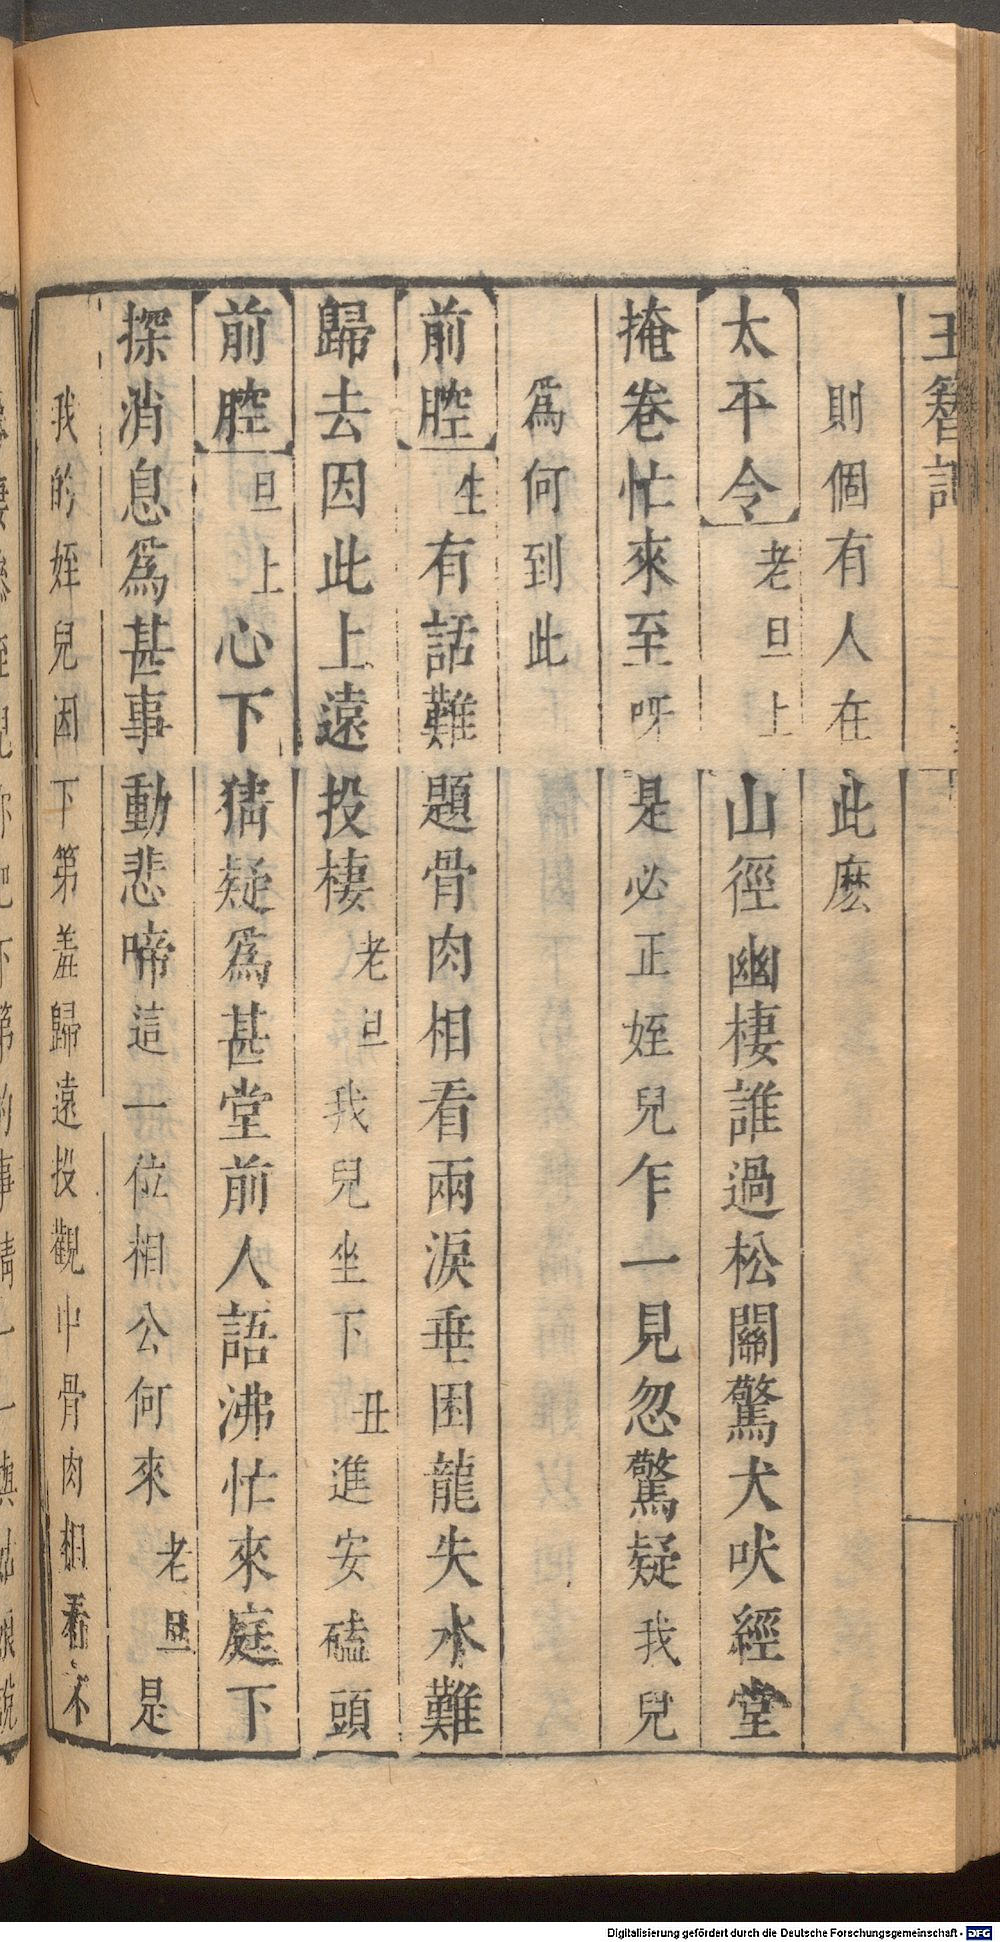 玉簪記
則個有人在此麽
太平令 老旦上 山徑幽棲誰過松關驚犬吠經堂
掩卷忙來至呀是必正姪兒乍一見忽驚疑我兒
爲何到此
前腔 生 有話難題骨肉相看兩淚垂困龍失水難
歸去因此上遠投棲 老旦 我兒坐下 丑 進安磕頭
前腔 旦上 心下猜疑爲甚堂前人語沸忙來庭下
探消息爲甚事動悲啼這一位相公何來 老旦 是
我的姪兒因下第羞歸遠投觀中骨肉相看不
Digitalisierung gefördert durch die Deutsche Forschungsgemeinschaft - DFG